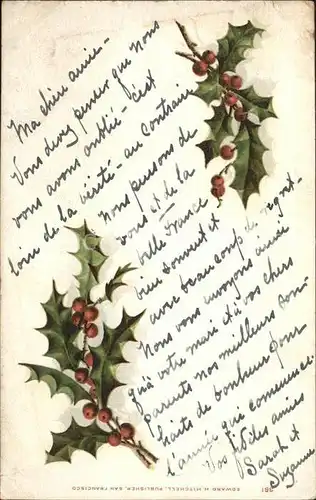 Ma chère amie -
Vous devez penser que nous
vous avons oublié - c'est
loin de la vérité - au contraire
nous pensons de
vous et de la
belle France
bien souvent et
avec beaucoup de regret -
Nous vous envoyons ainsi
qu'à votre mari et à vos chers
parents nos meilleurs sou-
haits de bonheur pour
l'année qui commence.
Vos fidèles amies
Sarah et
Suzanne
EDWARD H. MITCHELL, PUBLISHER, SAN FRANCISCO
361